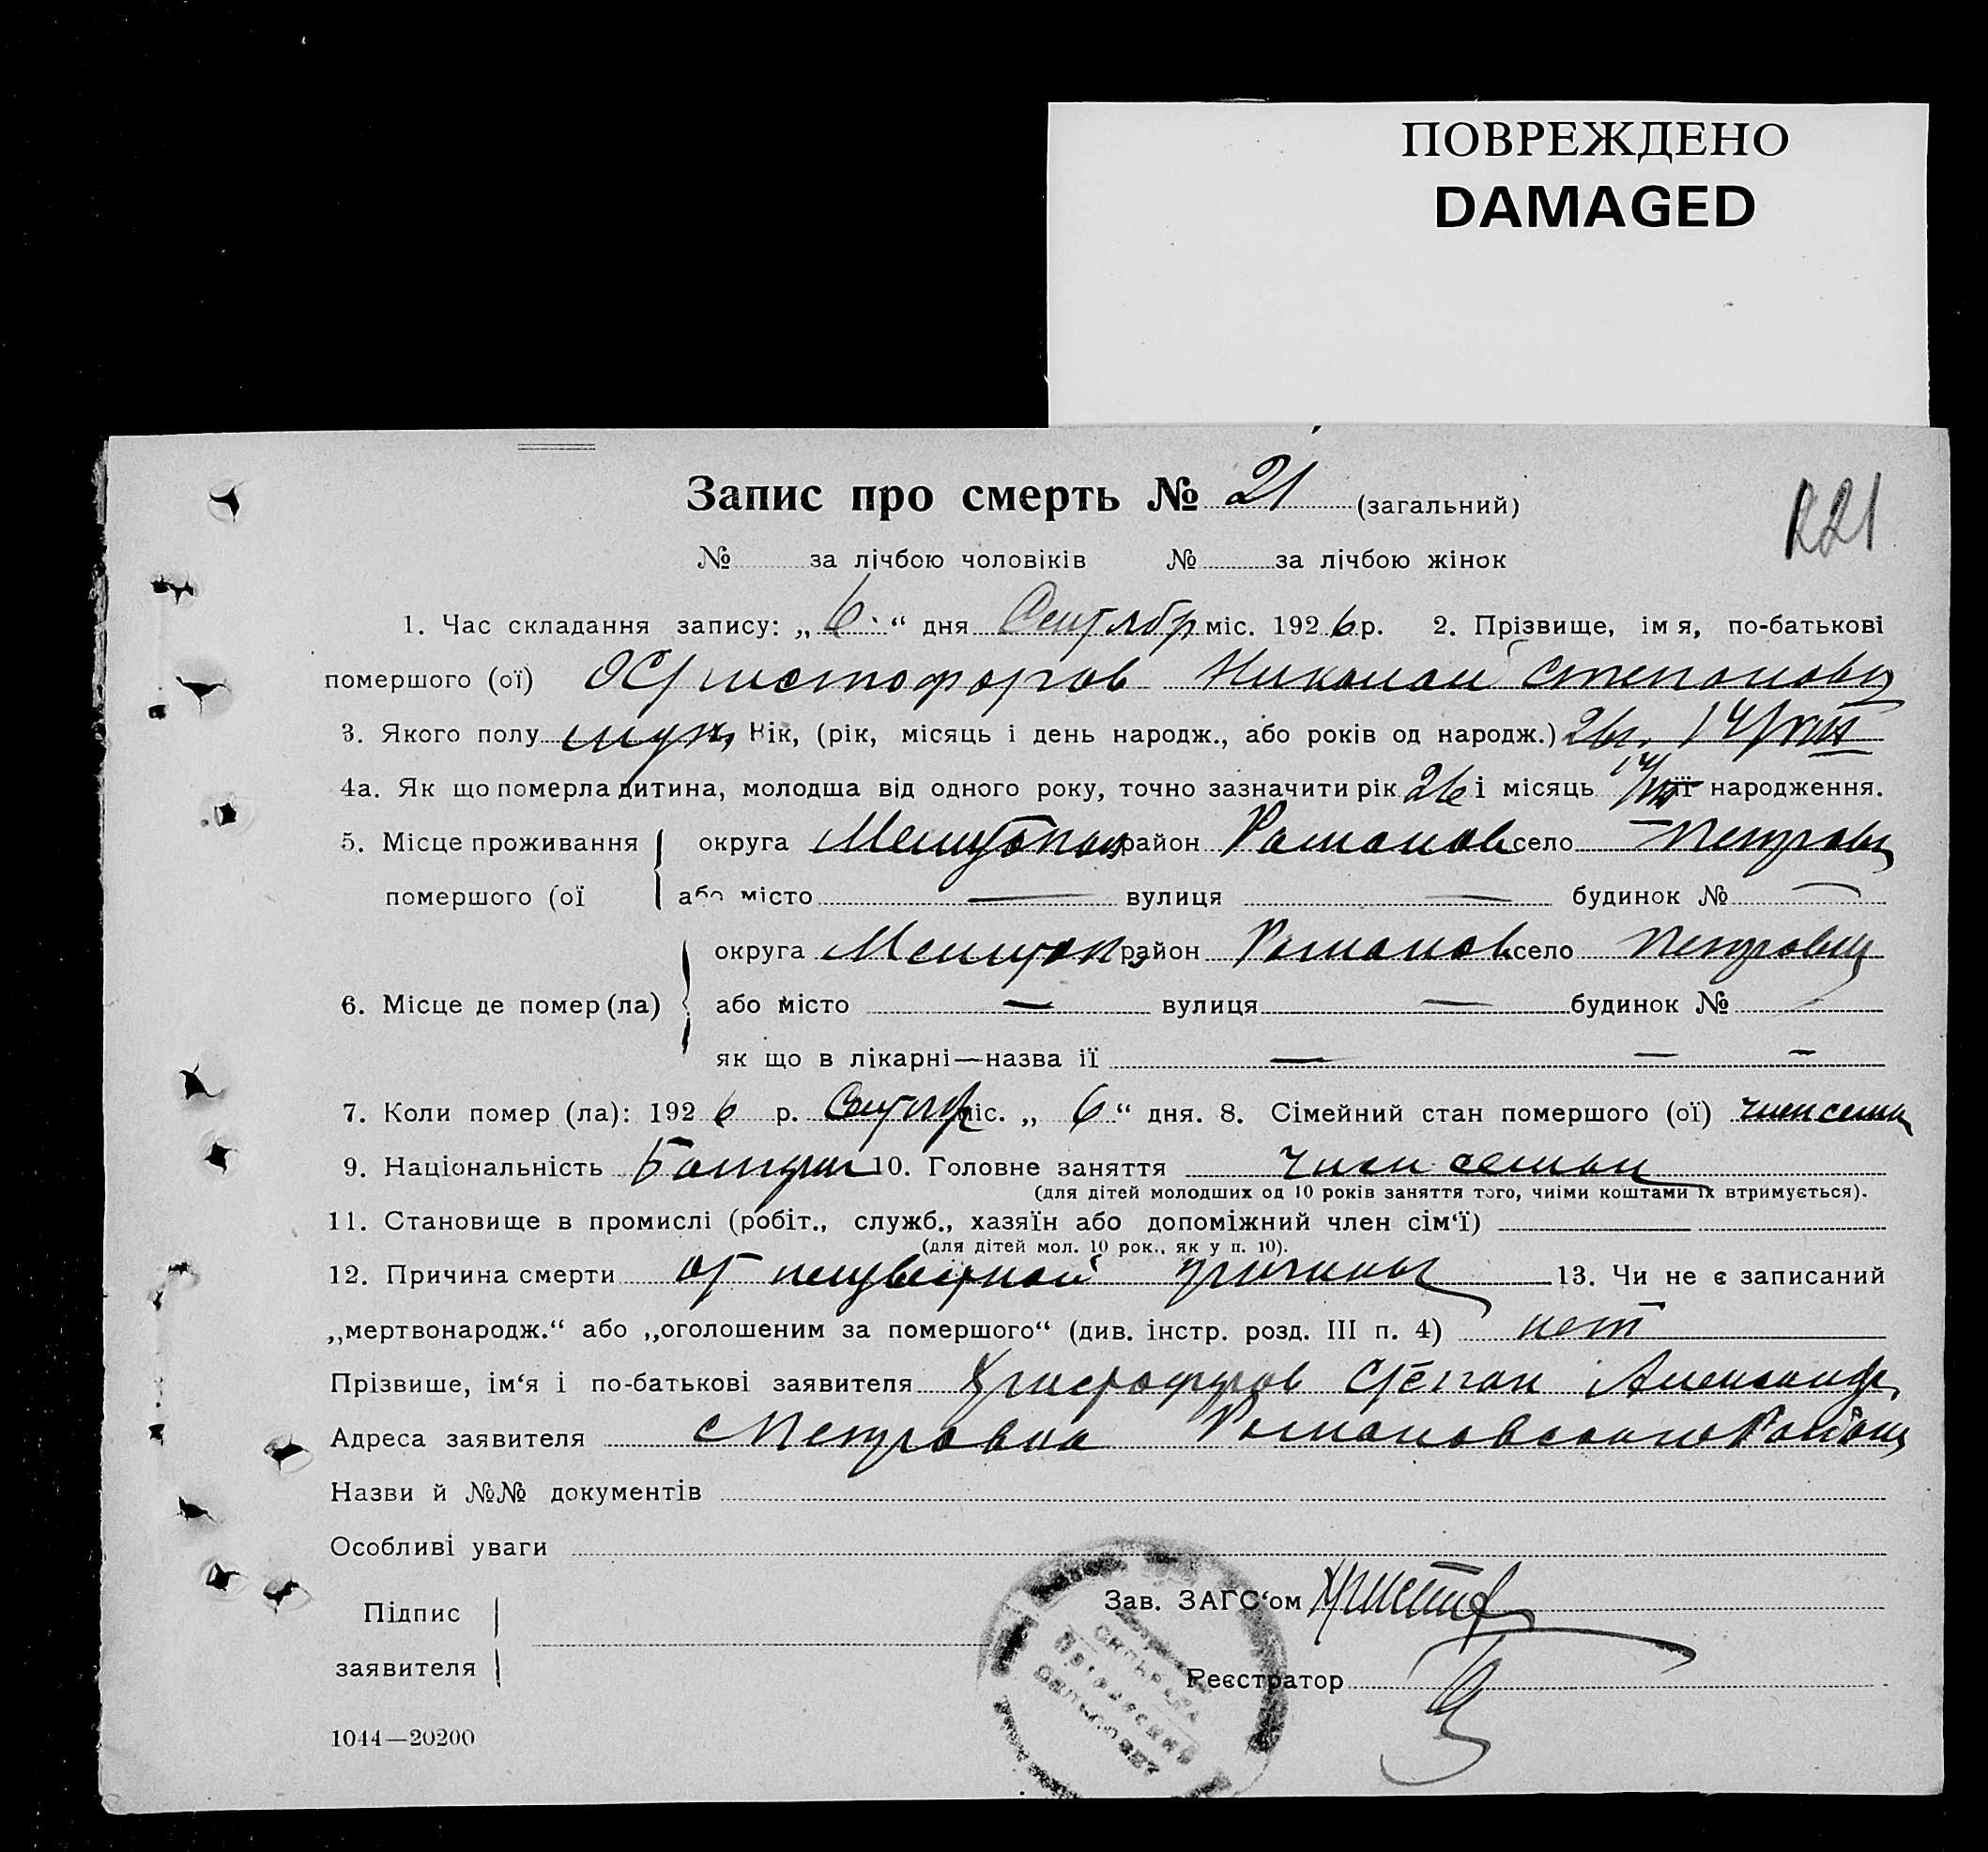 ПОВРЕЖДЕНО
DAMAGED
Запис про смерть № 21 (загальний)
221
№ за лічбою чоловіків № за лічбою жінок
1. Час складання запису: „6“ дня Сентябр міс. 1926 р. 2. Прізвище, імя, по-батькові
помершого (ої) Христофоров Николай Степанович
3. Якого полу муж. Вік, (рік, місяць і день народж., або років од народж.) 26 г. 14/VIII
4а. Як що померла дитина, молодша від одного року, точно зазначити рік 26 і місяць 14/VIII її народження.
5. Місце проживання округа район Романов село
помершого (ої або місто — вулиця — будинок № —
округа район Романов село
6. Місце де помер (ла) або місто — вулиця — будинок №
як що в лікарні—назва ії — — —
7. Коли помер (ла): 1926 р. Сентябр міс. „6“ дня. 8. Сімейний стан помершого (ої) член семьи
9. Національність 10. Головне заняття член семьи
(для дітей молодших од 10 років заняття того, чиїми коштами їх втримується).
11. Становище в промислі (робіт., служб., хазяїн або допоміжний член сім‘ї)
(для дітей мол. 10 рок., як у п. 10).
12. Причина смерти от причины 13. Чи не є записаний
„мертвонародж.“ або „оголошеним за помершого“ (див. інстр. розд. III п. 4) нет
Прізвише, ім‘я і по-батькові заявителя Христофоров Степан Александр.
Адреса заявителя с Петровка Романовского Района
Назви й №№ документів
Особливі уваги
Підпис
заявителя
Зав. ЗАГС‘ом
Реєстратор
1044—20200